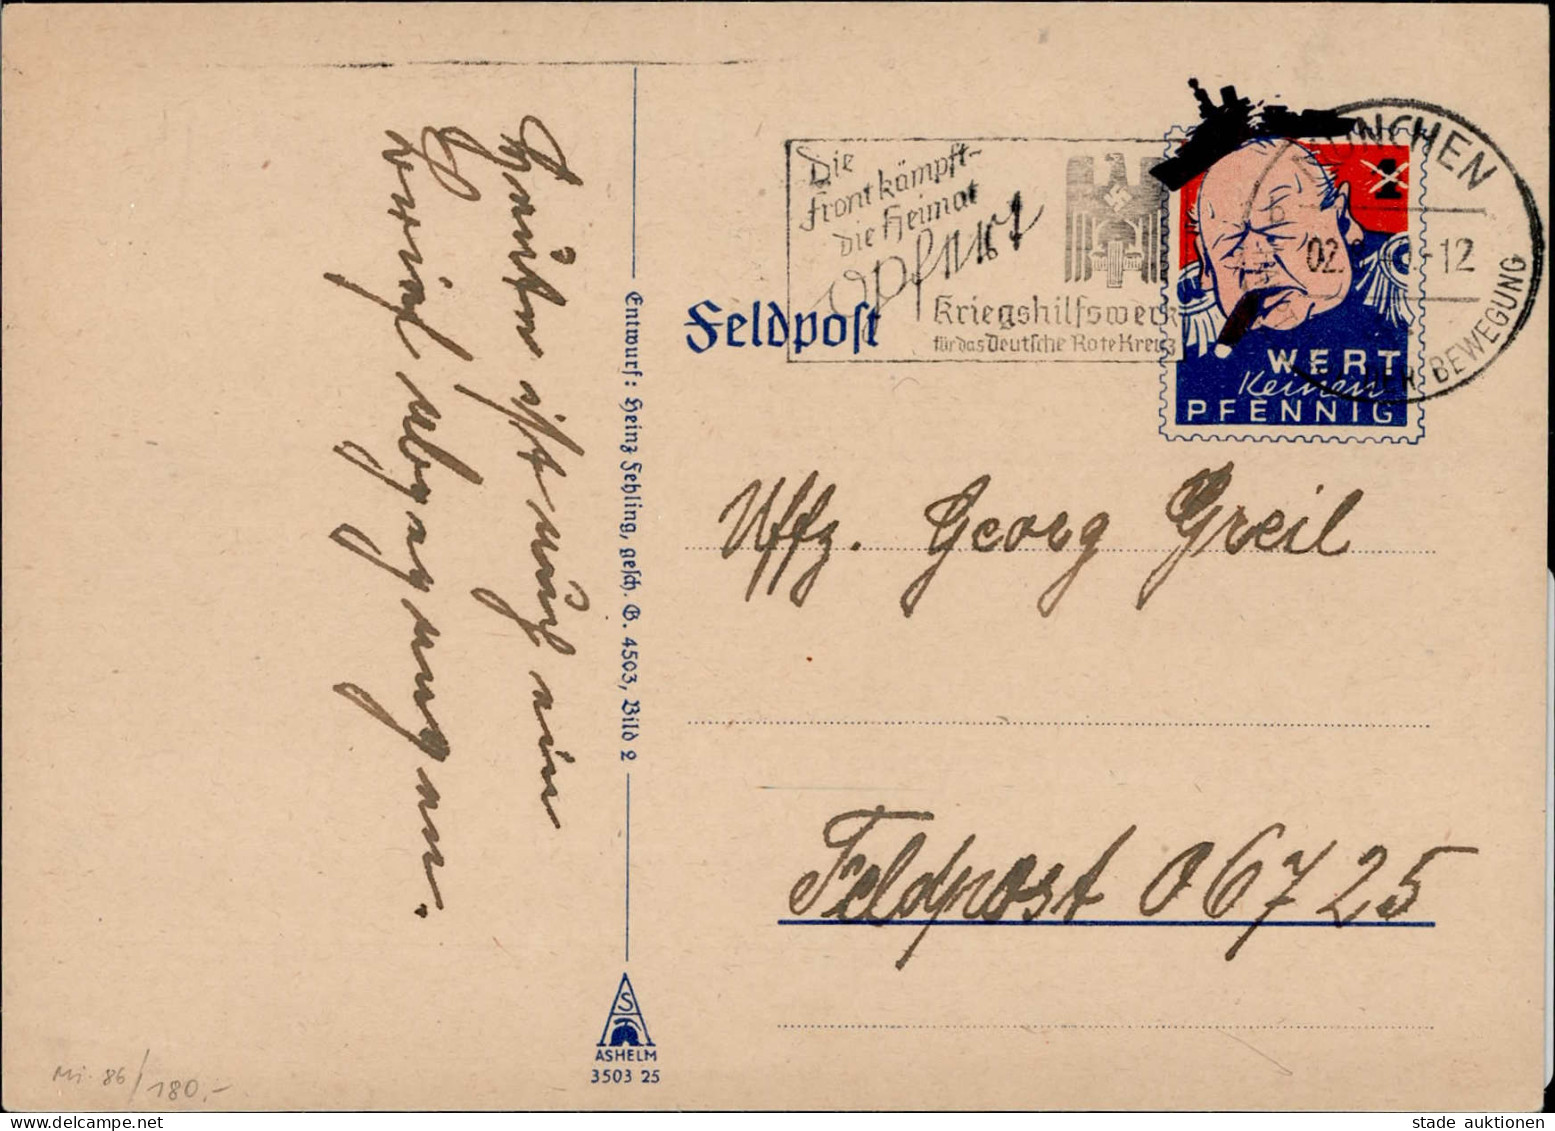 Heute ist nur ein
Er wird
Entwurf: Heinz Fehling, gesch. G. 4503, Bild 2
ASHELM
3503 25
Mi. 86/180,-
Die
Front kämpft-
die Heimat
opfert
Kriegshilfswerk
für das Deutsche Rote Kreuz
MÜNCHEN
02. -12
DER BEWEGUNG
1
WERT
Keinen
PFENNIG
Feldpost
Uffz. Georg Greil
Feldpost 06725
stade auktionen